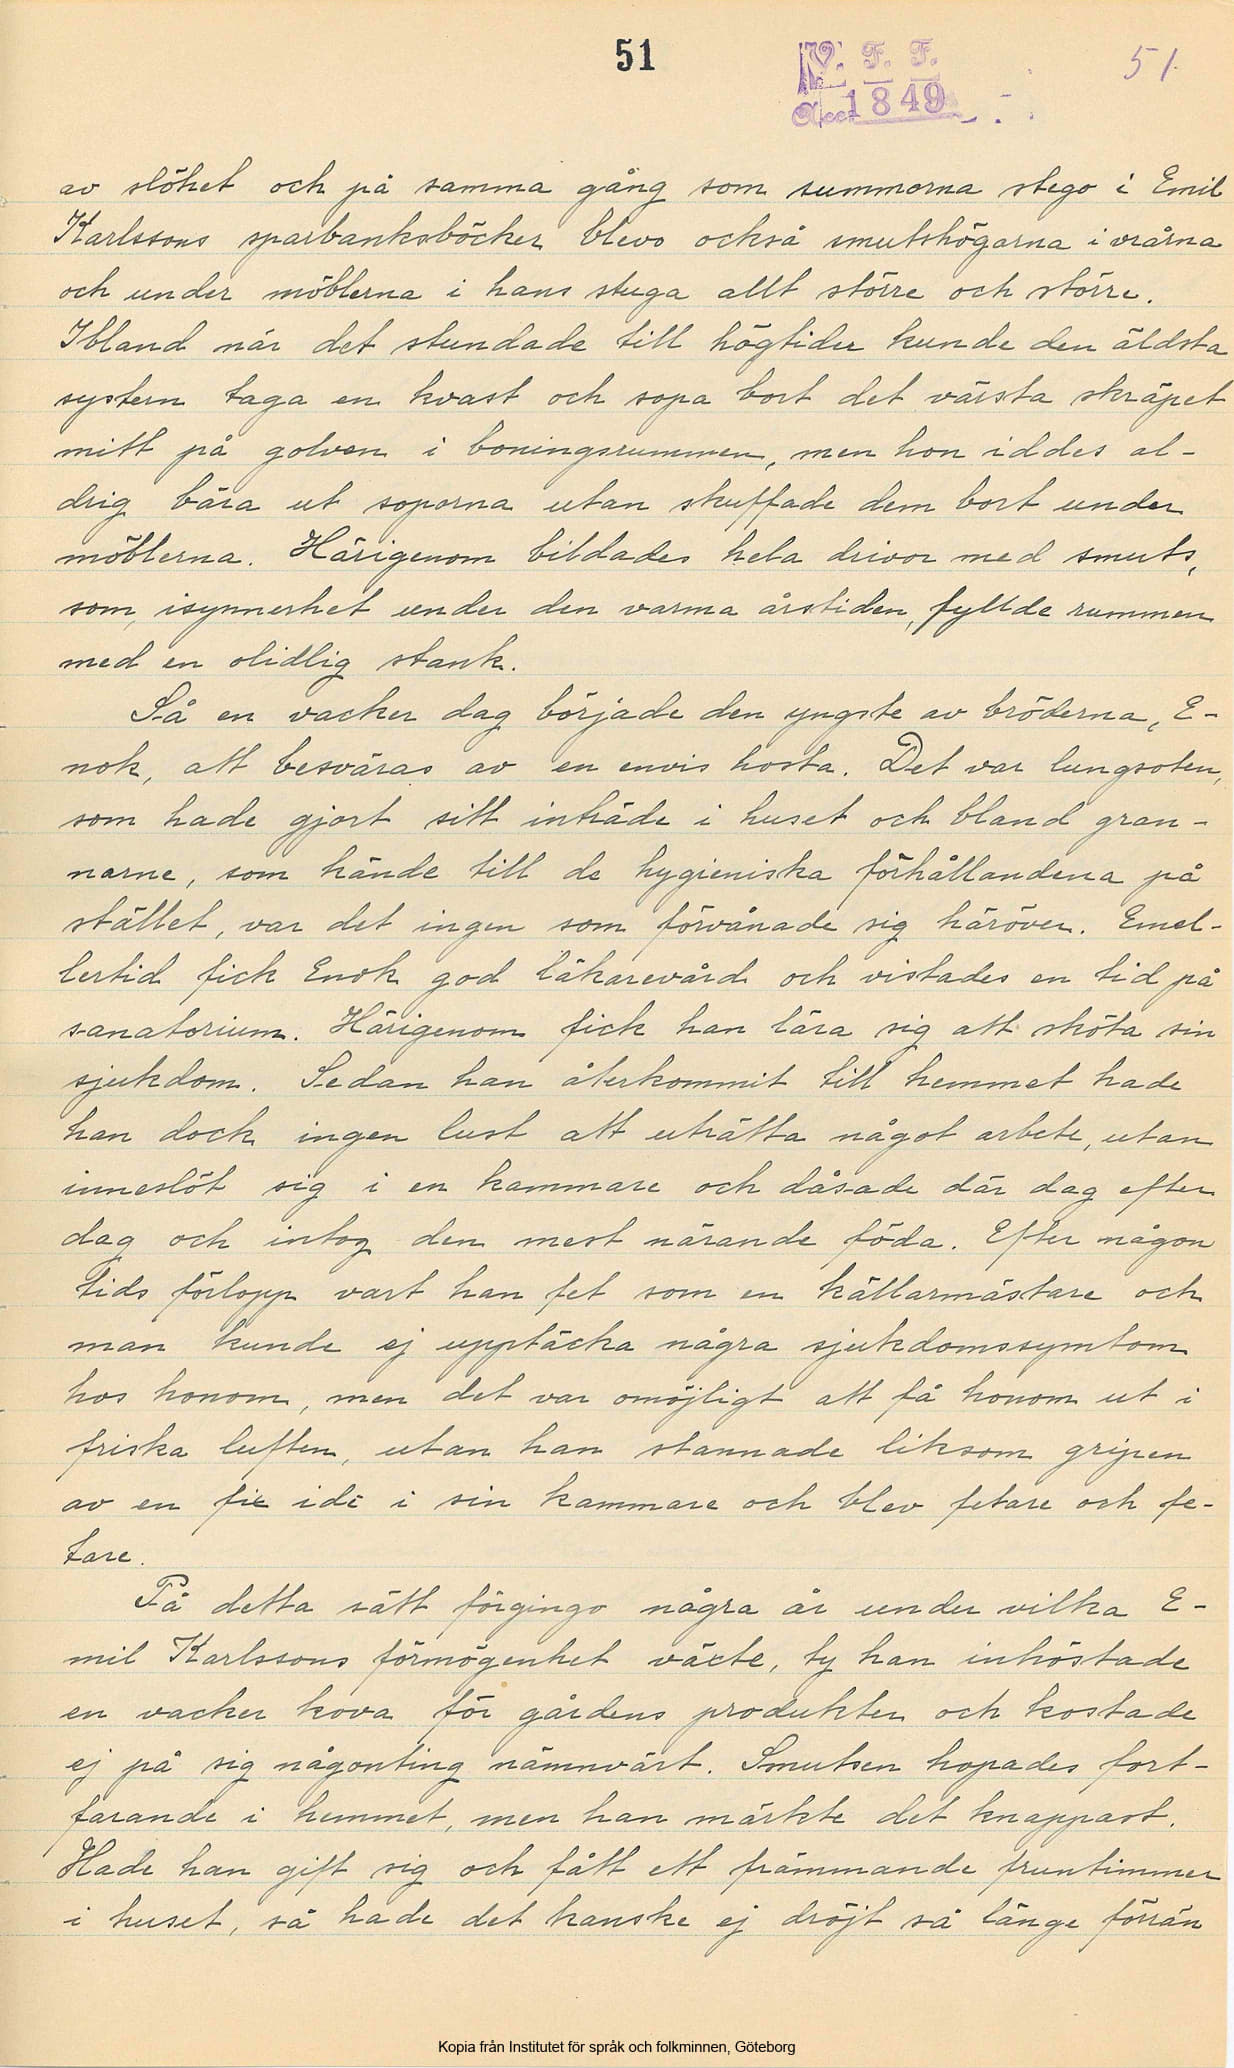 51
V. F. F.
51.
Acc. 1849
av slöhet och på samma gång som summorna stego i Emil
Karlssons sparbanksböcker blevo också smutshögarna i vrårna
och under möblerna i hans stuga allt större och större.
Ibland när det stundade till högtider kunde den äldsta
systern taga en kvast och sopa bort det värsta skräpet
mitt på golven i boningsrummen, men hon iddes al-
drig bära ut soporna utan skuffade dem bort under
möblerna. Härigenom bildades hela drivor med smuts,
som, isynnerhet under den varma årstiden, fyllde rummen
med en olidlig stank.
Så en vacker dag började den yngste av bröderna, E-
nok, att besväras av en envis hosta. Det var lungsoten,
som hade gjort sitt inträde i huset och bland gran-
narne, som kände till de hygieniska förhållandena på
stället, var det ingen som förvånade sig häröver. Emel-
lertid fick Enok god läkarevård och vistades en tid på
sanatorium. Härigenom fick han lära sig att sköta sin
sjukdom. Sedan han återkommit till hemmet hade
han dock ingen lust att uträtta något arbete, utan
inneslöt sig i en kammare och dåsade där dag efter
dag och intog den mest närande föda. Efter någon
tids förlopp vart han fet som en källarmästare och
man kunde ej upptäcka några sjukdomssymtom
hos honom, men det var omöjligt att få honom ut i
friska luften, utan han stannade liksom gripen
av en fix idé i sin kammare och blev fetare och fe-
tare.
På detta sätt förgingo några år under vilka E-
mil Karlssons förmögenhet växte, ty han inhöstade
en vacker kova för gårdens produkter och kostade
ej på sig någonting nämnvärt. Smutsen hopades fort-
farande i hemmet, men han märkte det knappast.
Hade han gift sig och fått ett främmande fruntimmer
i huset, så hade det kanske ej dröjt så länge förrän
Kopia från Institutet för språk och folkminnen, Göteborg